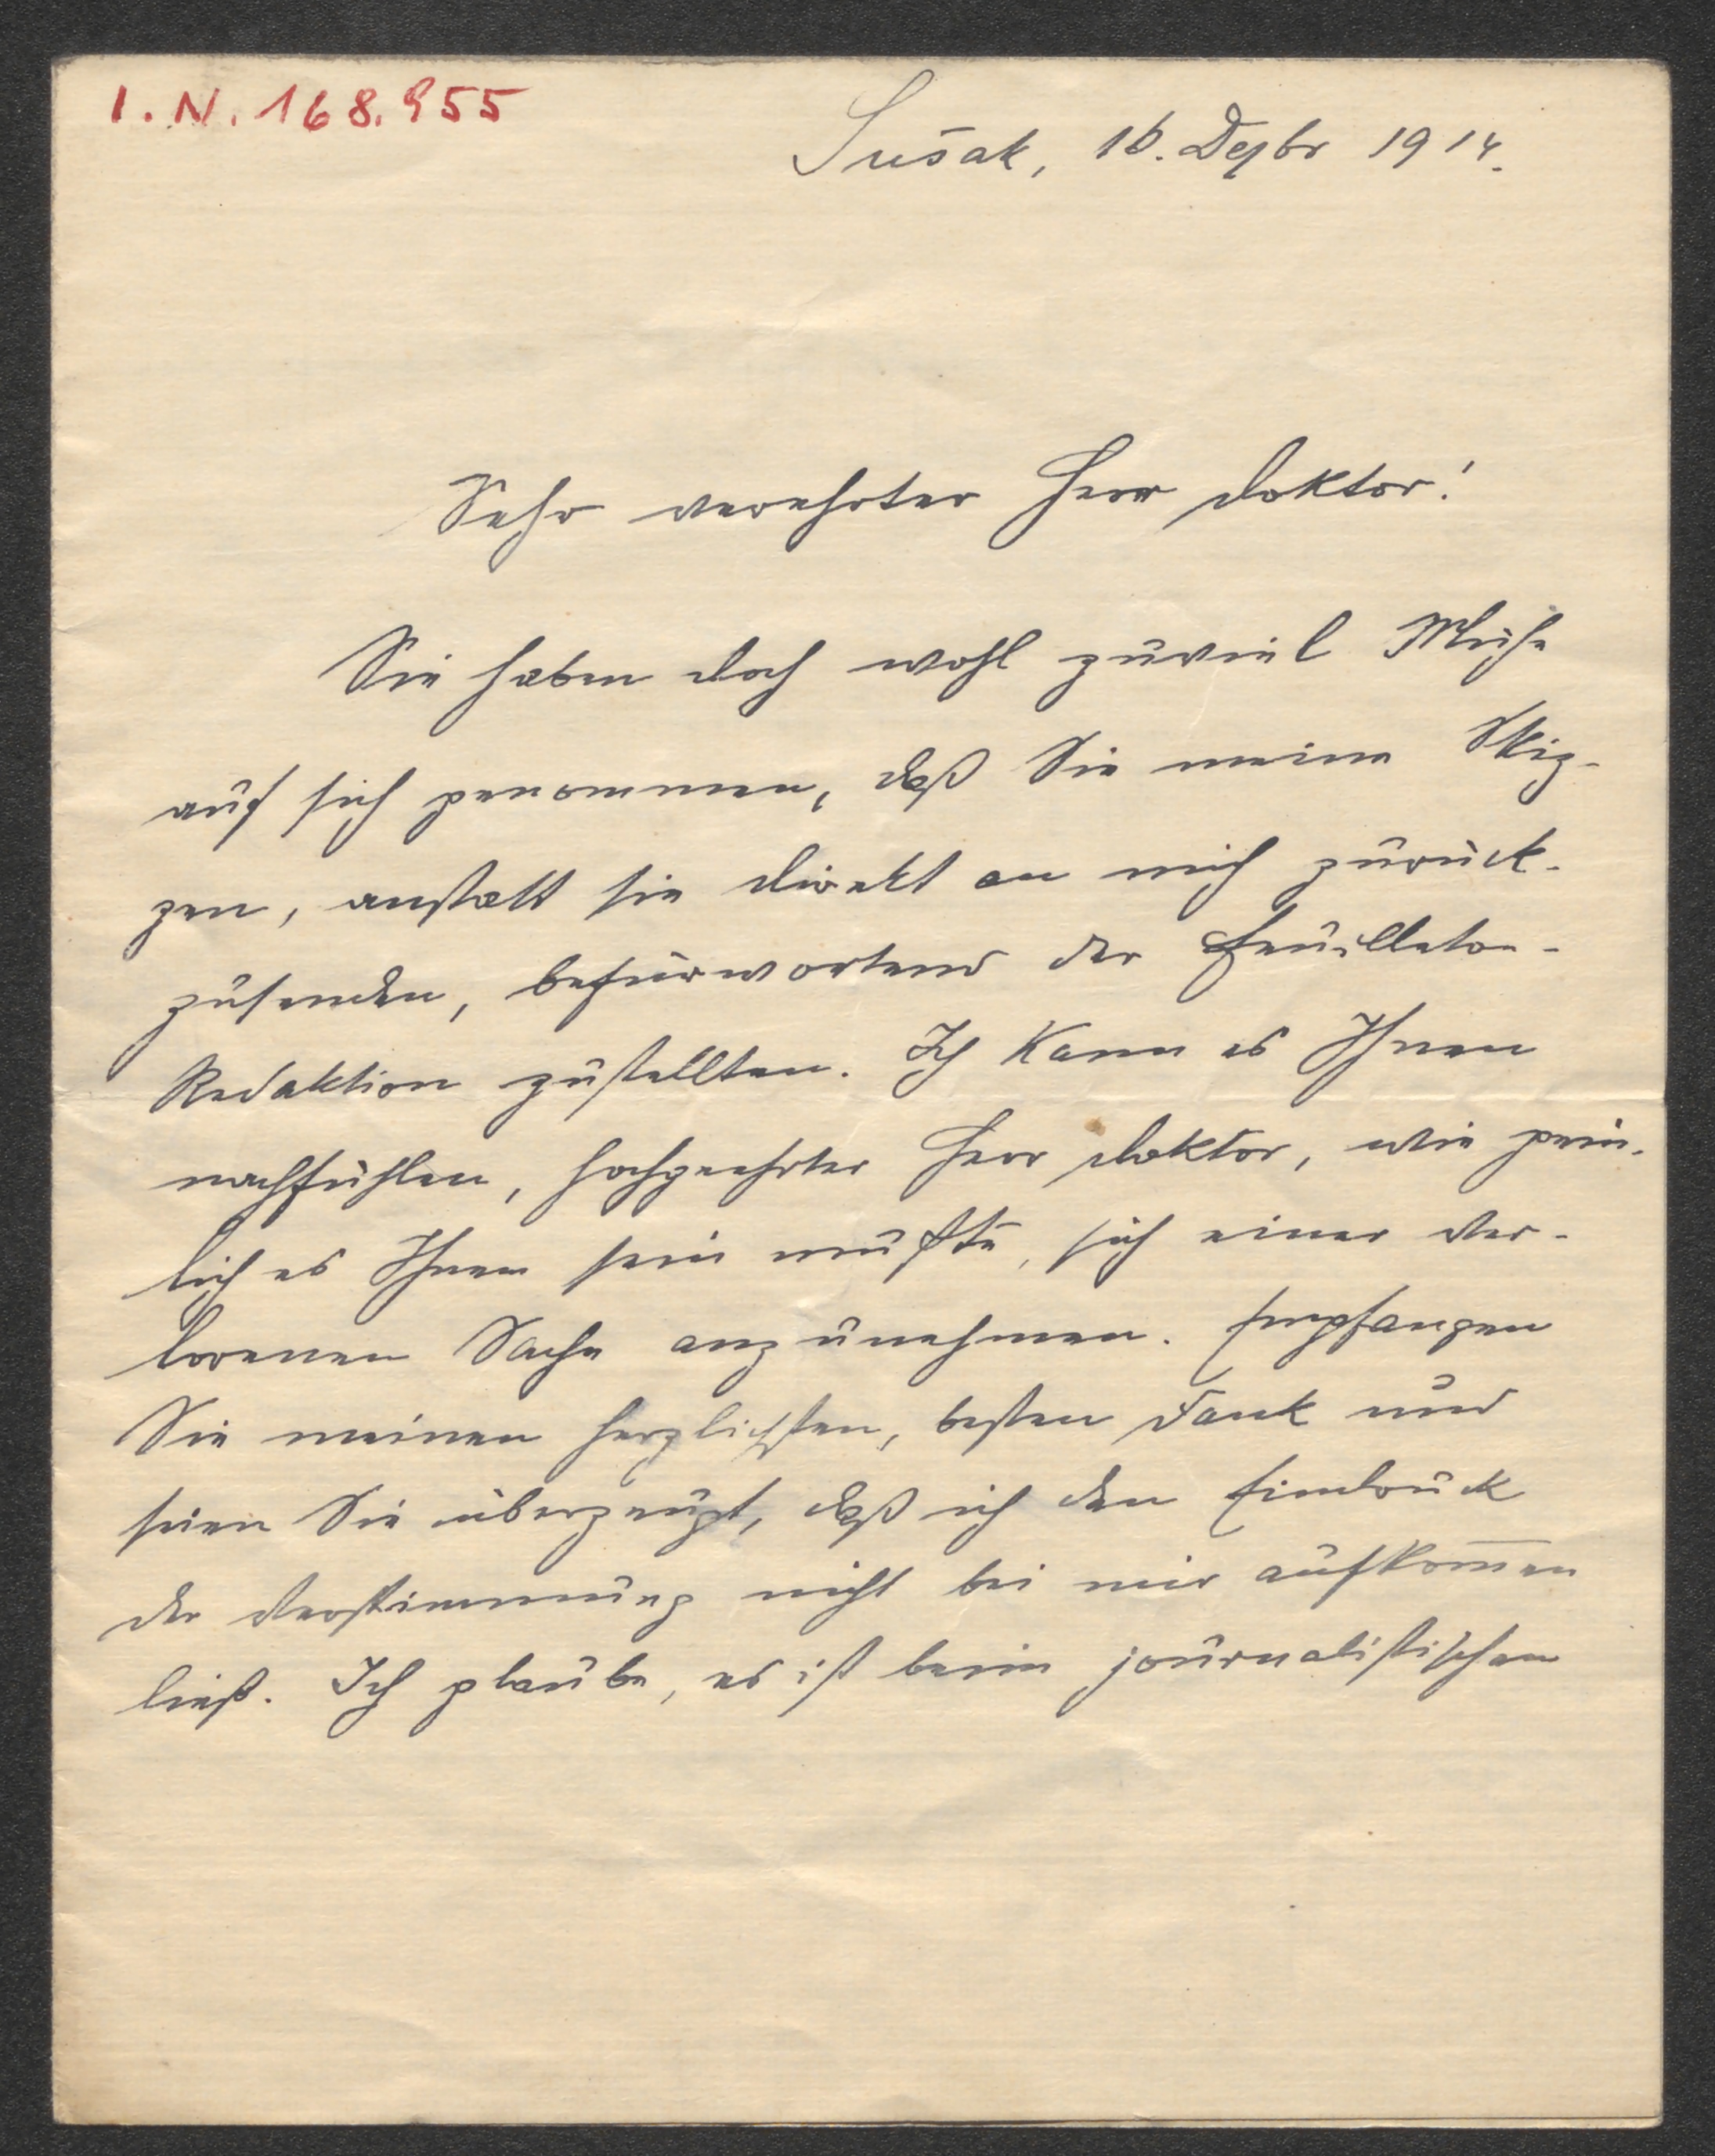 I. N. 168.955
Sušak, 16. Dezbr 1914.
Sehr verehrter Herr Doktor!
Sie haben doch wohl zuviel Mühe
auf sich genommen, daß Sie meine Skiz-
zen, anstatt sie direkt an mich zurück-
zusenden, befürwortend der Feuilleton-
Redaktion zustellten. Ich kann es Ihnen
nachfühlen, hochgeehrter Herr Doktor, wie pein-
lich es Ihnen sein mußte, sich einer ver-
lorenen Sache anzunehmen. Empfangen
Sie meinen herzlichsten, besten Dank und
seien Sie überzeugt, daß ich den Eindruck
der Verstimmung nicht bei mir aufkom̅en
ließ. Ich glaube, es ist beim journalistischen